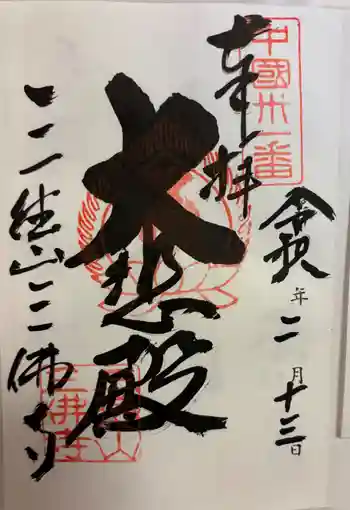 令和 年二月十三日
中國卅一番
奉拝
大悲殿
三徳山三佛寺